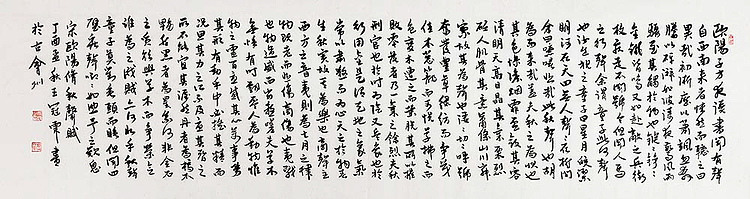 歐陽子方夜讀書聞有聲
自西南來者悚然而聽之曰
異哉初淅瀝以蕭颯忽奔
騰而砰湃如波濤夜驚風雨
驟至其觸於物也鏦鏦錚錚
金鐵皆鳴又如赴敵之兵銜
枚疾走不聞號令但聞人馬
之行聲余謂童子此何聲
也汝出視之童子曰星月皎潔
明河在天四無人聲聲在樹間
余曰噫嘻悲哉此秋聲也胡
為而來哉蓋夫秋之為狀也
其色慘淡煙霏雲斂其容
清明天高日晶其氣栗冽
砭人肌骨其意蕭條山川寂
寥故其為聲也淒淒切切呼號
奮發豐草綠縟而爭茂
佳木蔥蘢而可悅草拂之而
色變木遭之而葉脫其所以摧
敗零落者乃一氣之餘烈夫秋
刑官也於時為陰又兵象也於
行用金是謂天地之義氣
常以肅殺而為心天之於物春
生秋實故其在樂也商聲主
西方之音夷則為七月之律
物既老而悲傷商傷也夷戮
也物過盛而當殺嗟夫草木
無情有時飄零人為動物惟
物之靈百憂感其心萬事勞
其形有動乎中必搖其精而
況思其力之所不及憂其智之所
不能宜其渥然丹者為槁木
黟然黑者為星星奈何非金石
之質欲與草木而爭榮念
誰為之戕賊亦何恨乎秋聲
童子莫對垂頭而睡但聞四
壁蟲聲唧唧如助予之歎息
宋歐陽修秋聲賦
丁酉孟秋王冠軍書
於古會州